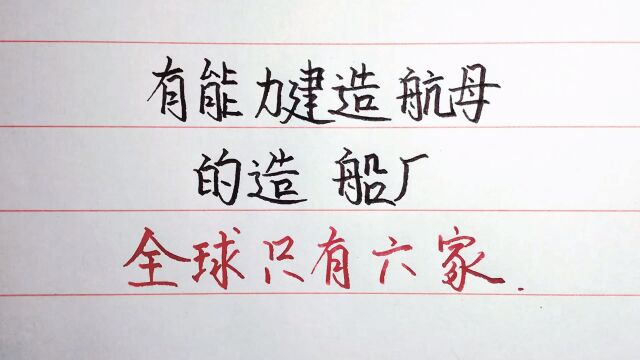 有能力建造航母
的造船厂
全球只有六家.